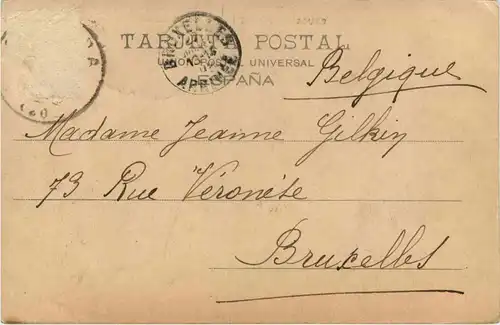 TARJETA POSTAL
UNION POSTAL UNIVERSAL
ESPAÑA
BRUXELLES
ARRIVEE
Belgique
Madame Jeanne Gilkin
73 Rue Véronèse
Bruxelles